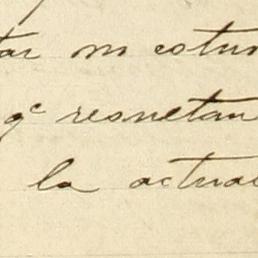 tar m costum
qe respetan
la actual